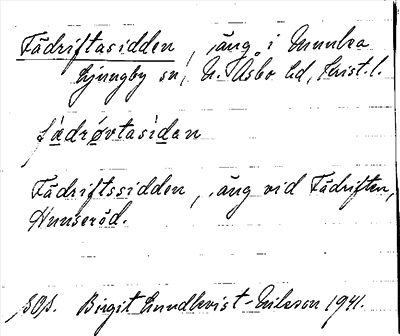 Fädriftasidden, äng i Munka
Ljungby sn, N. Åsbo hd, Krist. l.
fädrøvtasidan
Fädriftssidden, äng vid Fädriften,
Hunseröd.
Birgit Lundkvist-Nilsson 1941.